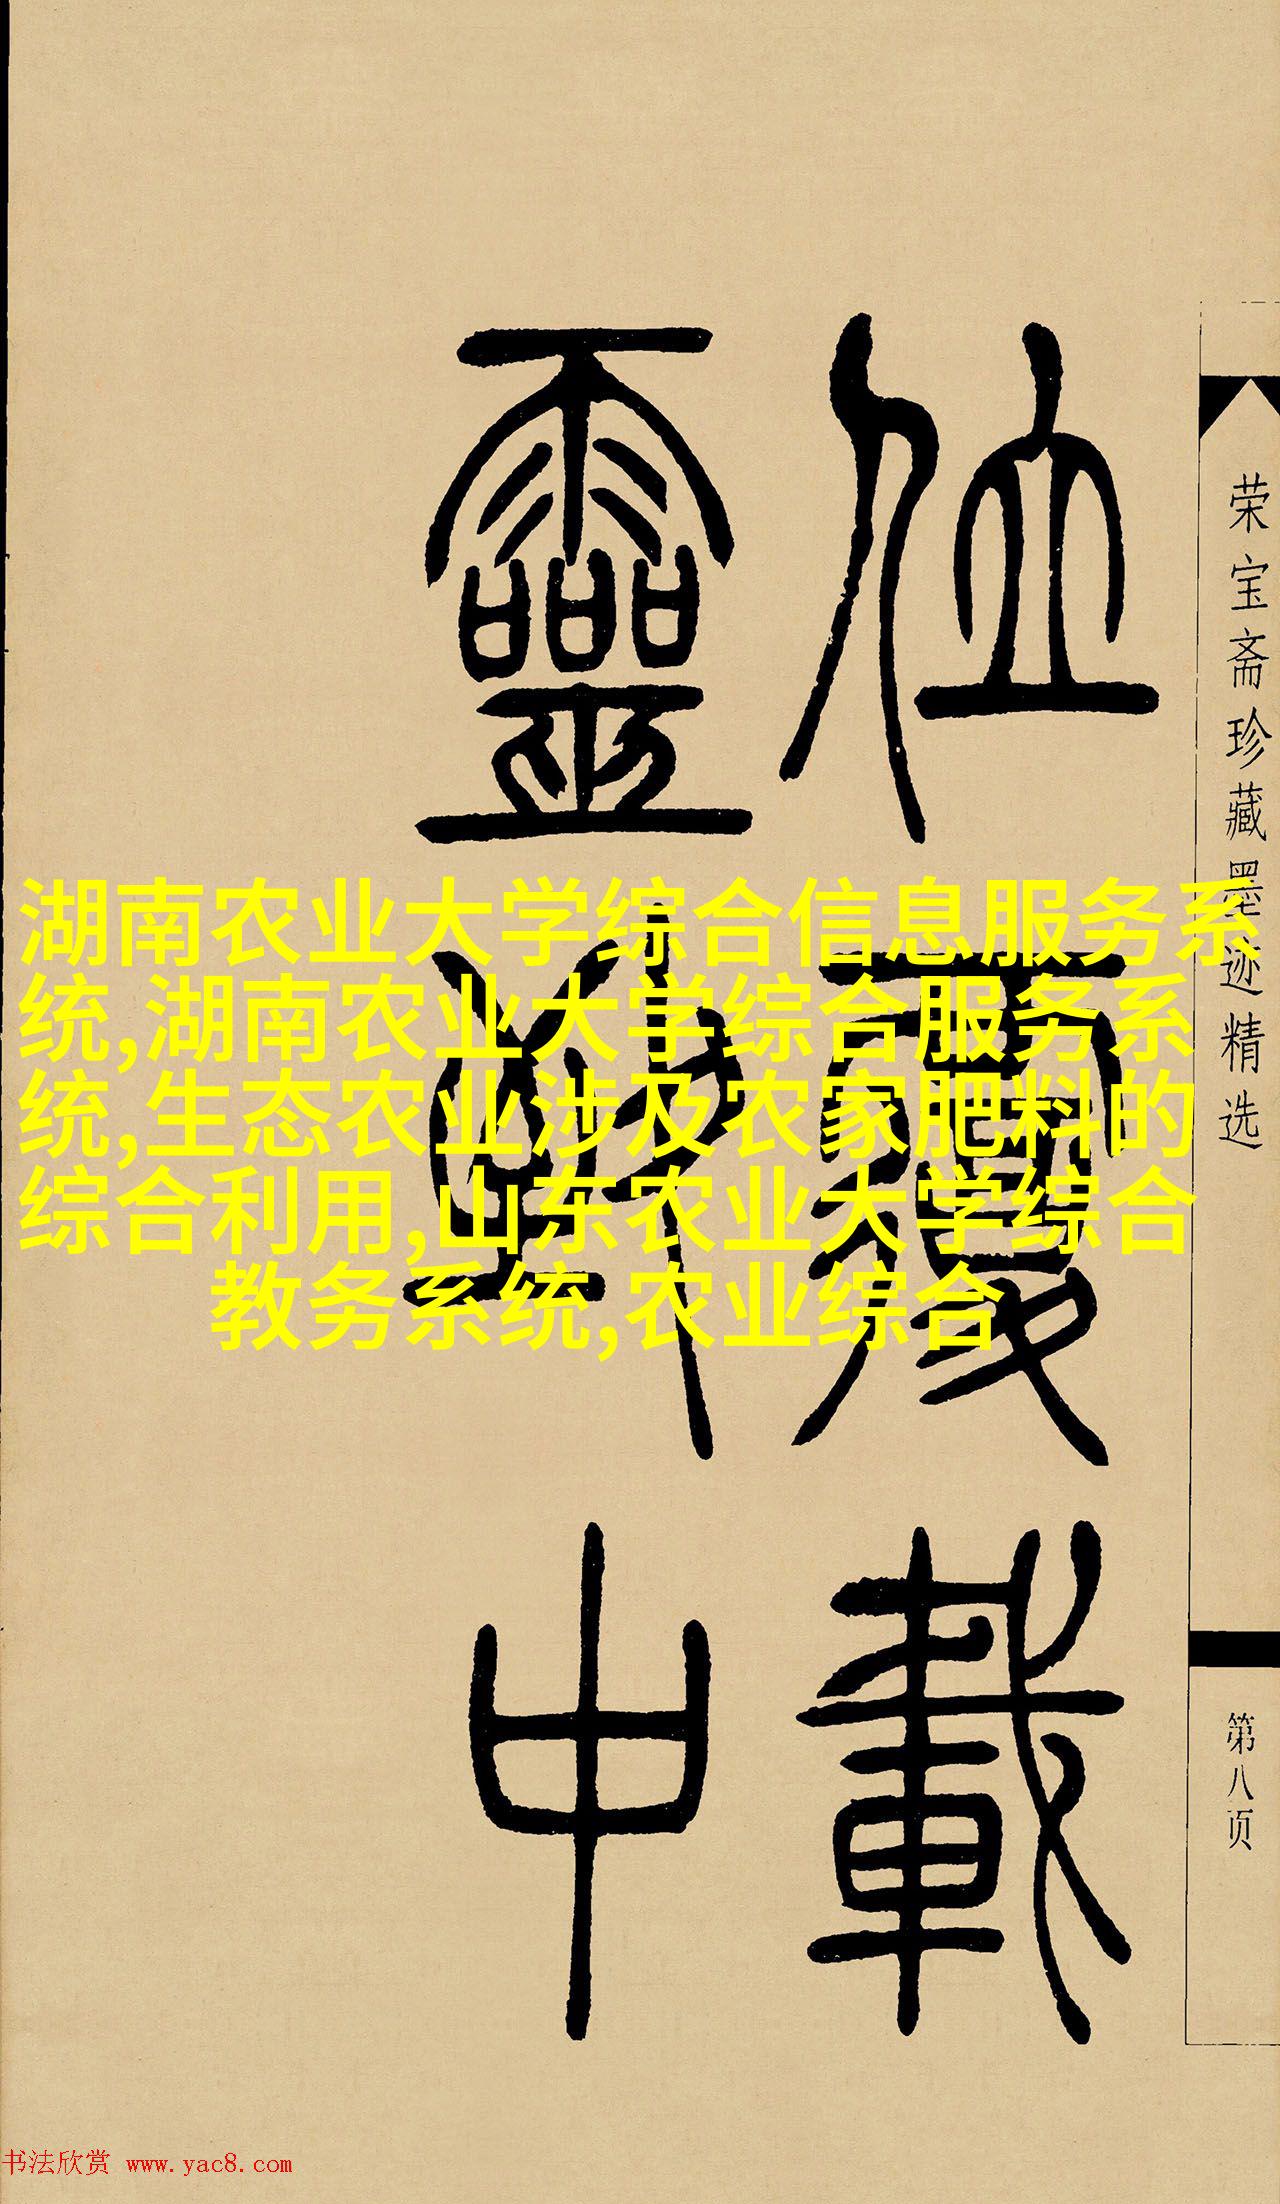 位覆載
靈
中
荣宝斋珍藏墨迹精选
第八页
湖南农业大学综合信息服务系
统,湖南农业大学综合服务系
统,生态农业涉及农家肥料的
综合利用,山东农业大学综合
教务系统,农业综合
书法欣赏 www.yac8.com